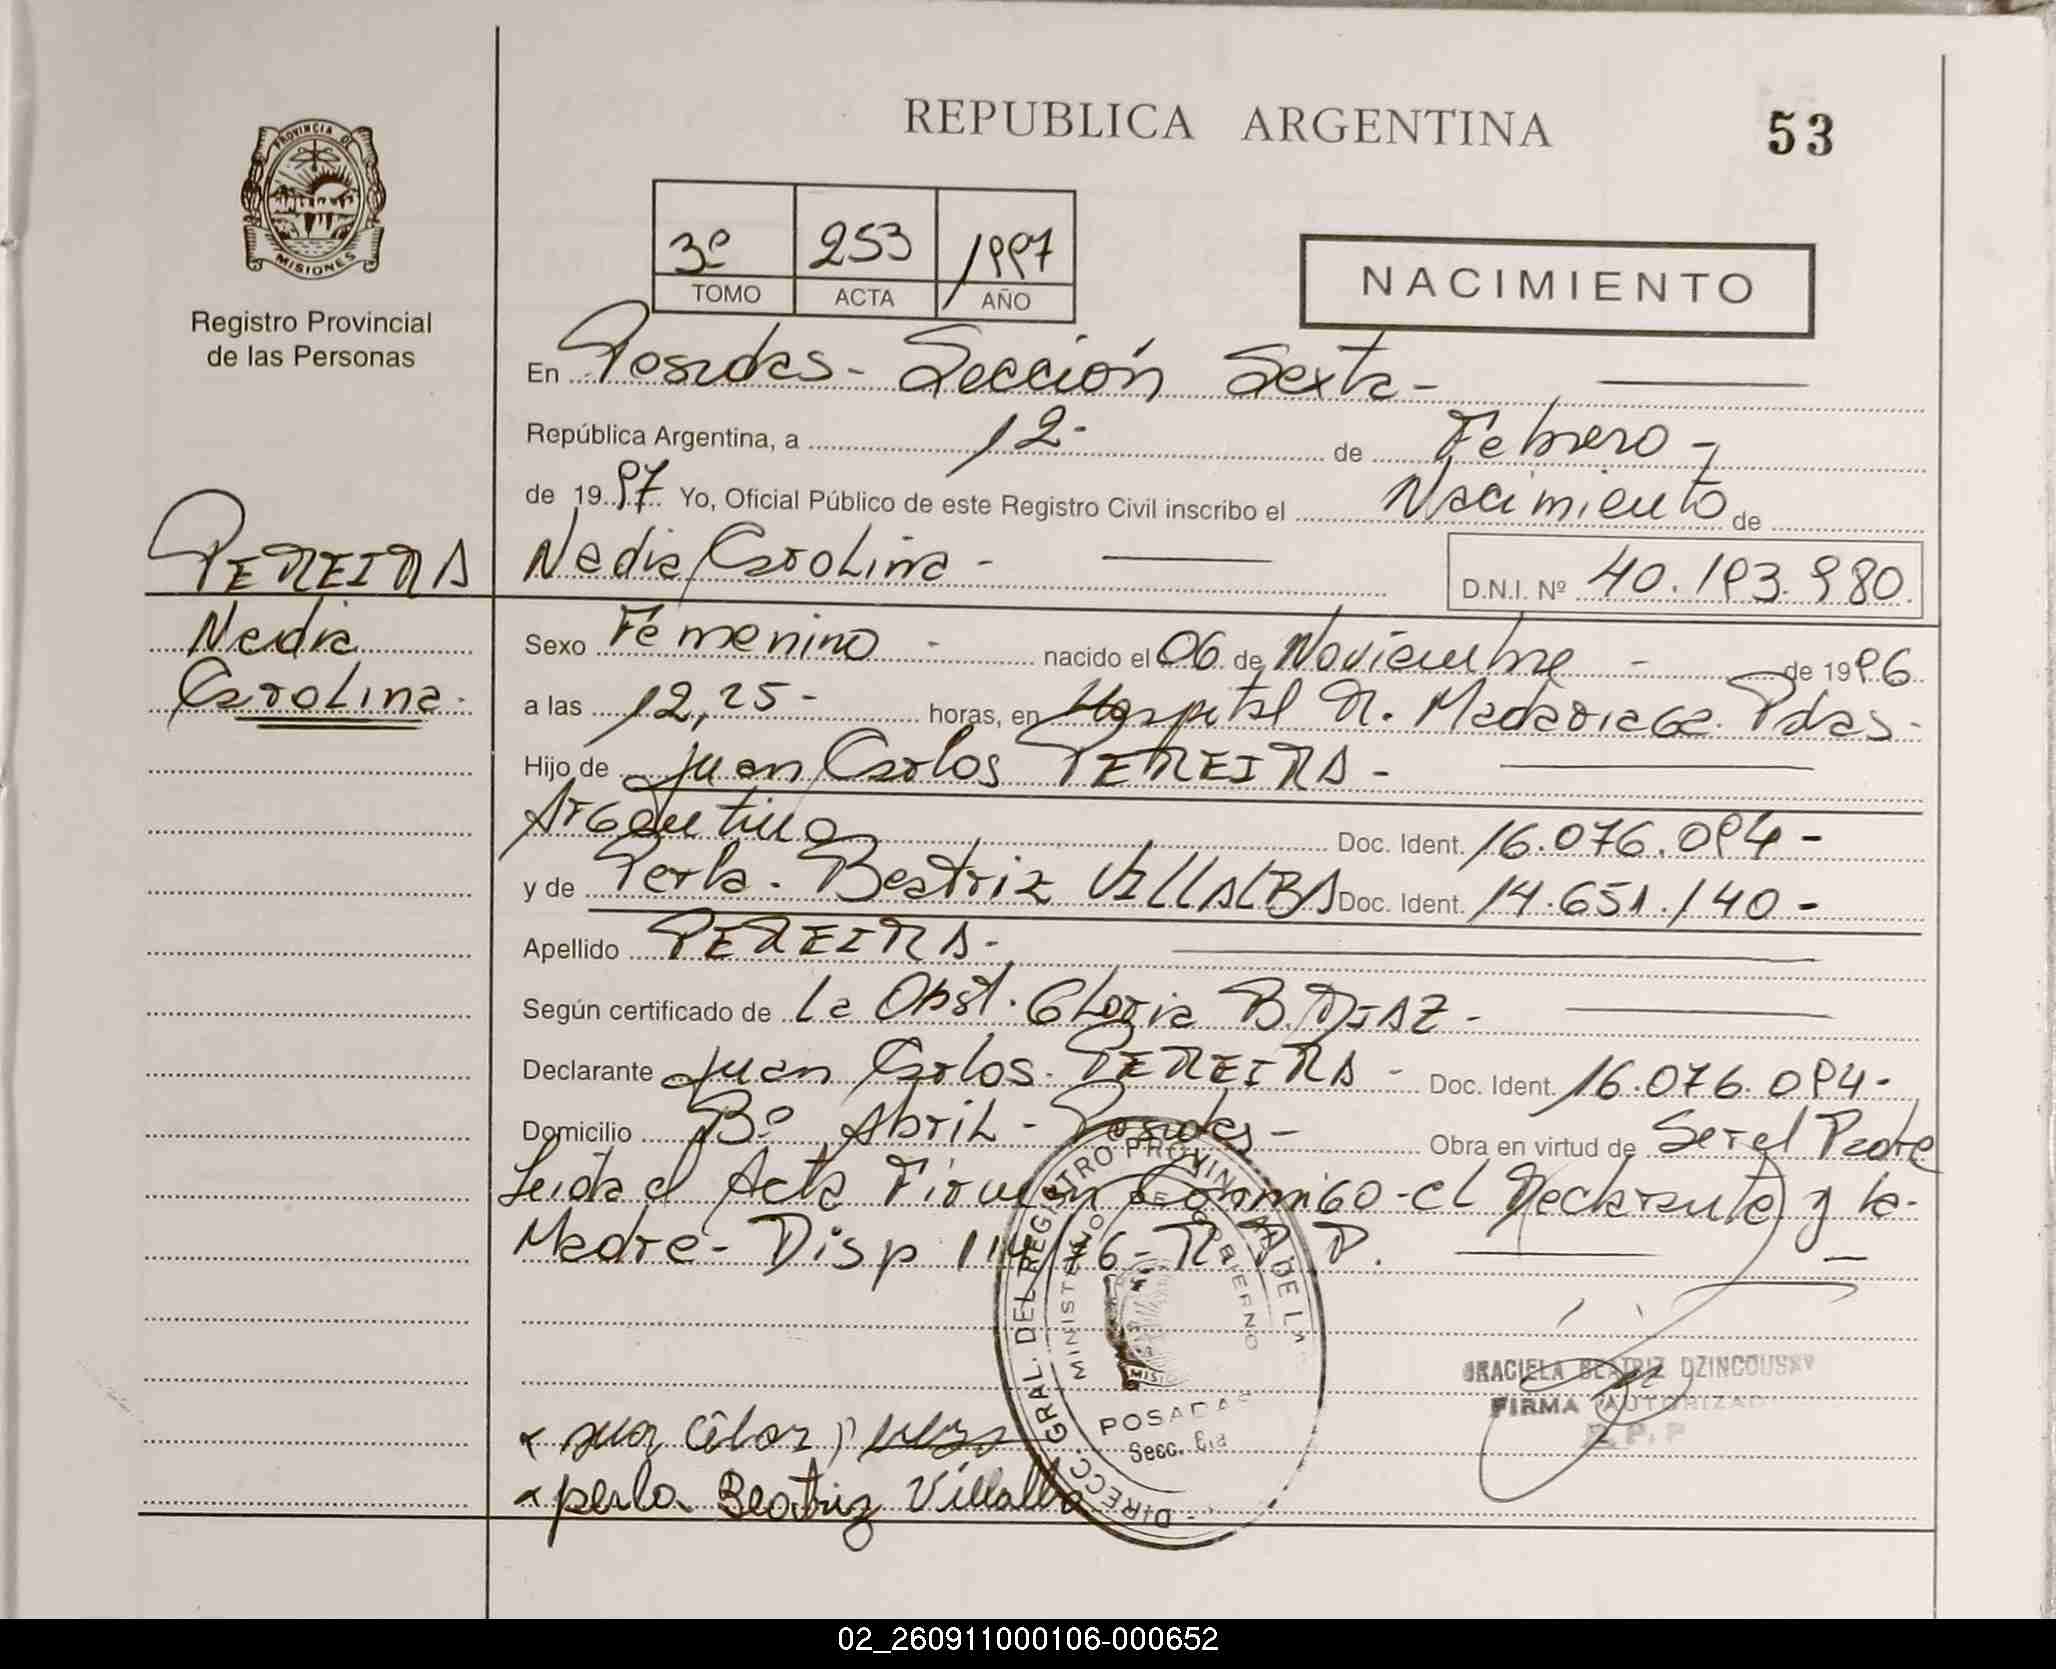 REPUBLICA ARGENTINA
53
PROVINCIA DE
MISIONES
Registro Provincial
de las Personas
3º 253 1997
TOMO ACTA AÑO
NACIMIENTO
En Posadas - Sección Sexta -
República Argentina, a 12 - de Febrero -
de 1997 Yo, Oficial Público de este Registro Civil inscribo el Nacimiento de
PEREIRA Nadia Carolina - D.N.I. Nº 40.193.980
Nadia
Carolina.
Sexo Femenino - nacido el 06 de Noviembre - de 1996
a las 12,25 - horas, en Hospital R. Madariaga. Pdas -
Hijo de Juan Carlos PEREIRA -
Argentino Doc. Ident. 16.076.094 -
y de Perla - Beatriz VILLALBA Doc. Ident. 14.651.140 -
Apellido PEREIRA -
Según certificado de La Obst. Gloria B. DIAZ -
Declarante Juan Carlos PEREIRA - Doc. Ident. 16.076.094 -
Domicilio Bº Abril - Posadas - Obra en virtud de Ser el Padre
Leida el Acta Firman Conmigo - el Declarante y la -
Madre - Disp 114/76 -
DIRECC. GRAL. DEL REGISTRO PROVINCIAL DE LA
MINISTERIO DE GOBIERNO
MISI
POSADAS
Secc. 6ta
GRACIELA BEATRIZ DZINCOUSKY
FIRMA AUTORIZAD
R.P.P
perla Beatriz Villalba
02_260911000106-000652